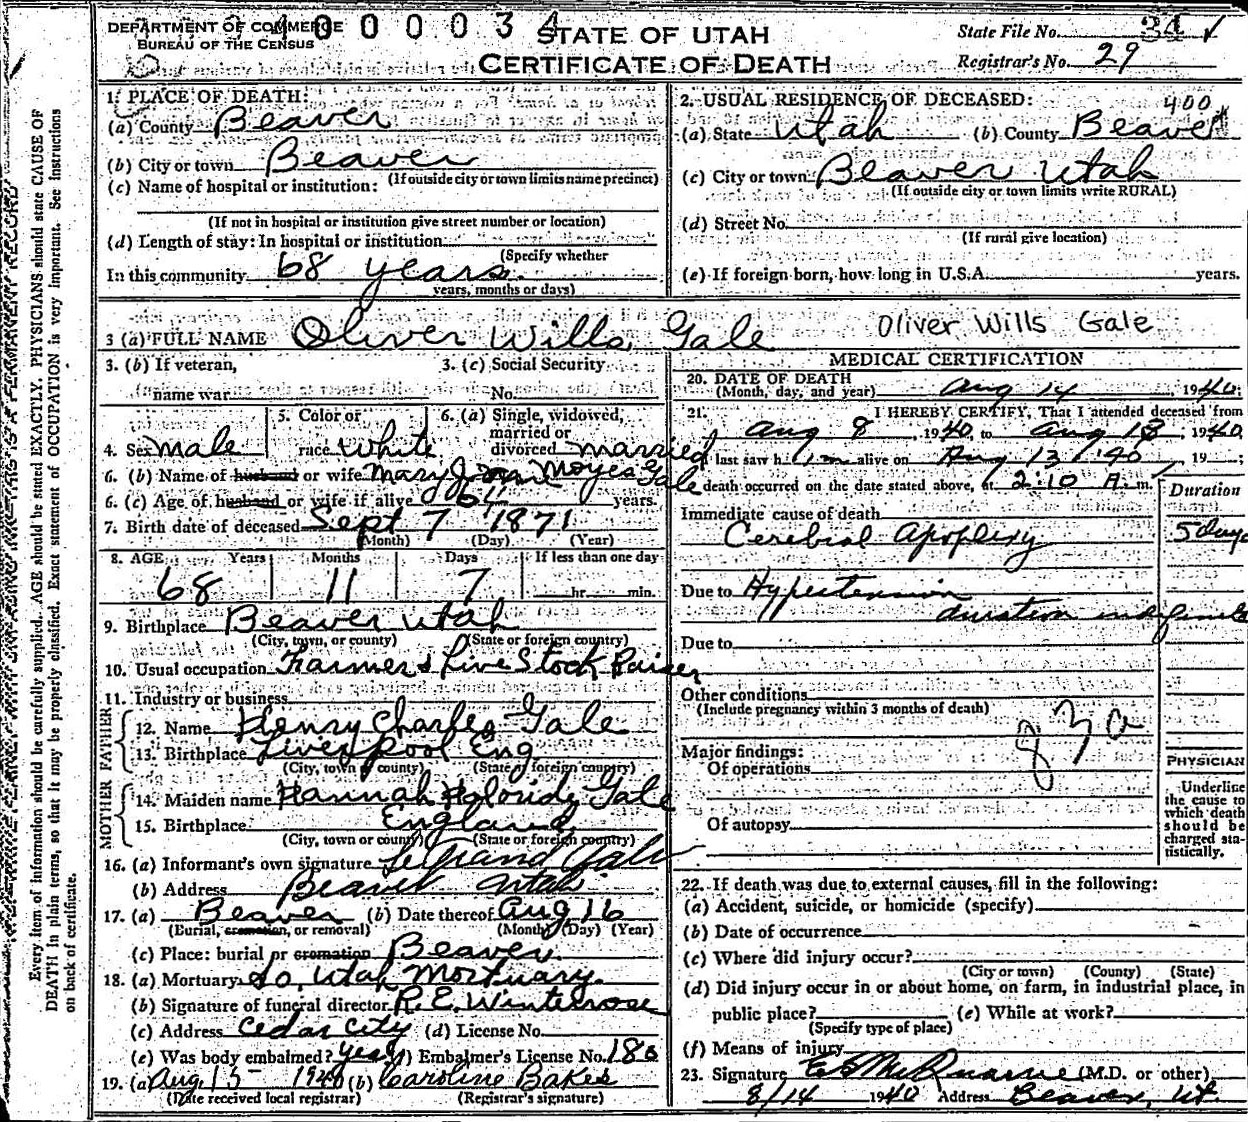 DEPARTMENT OF COMMERCE
BUREAU OF THE CENSUS
4 0 0 0 0 3 4
STATE OF UTAH
CERTIFICATE OF DEATH
State File No. 34 ✓
Registrar's No. 29
Every item of information should be carefully supplied. AGE should be stated EXACTLY. PHYSICIANS should state CAUSE OF
DEATH in plain terms, so that it may be properly classified. Exact statement of OCCUPATION is very important. See Instructions
on back of certificate.
1. PLACE OF DEATH:
(a) County Beaver
(b) City or town Beaver
(If outside city or town limits name precinct)
(c) Name of hospital or institution:
(If not in hospital or institution give street number or location)
(d) Length of stay: In hospital or institution
(Specify whether
In this community 68 years.
years, months or days)
2. USUAL RESIDENCE OF DECEASED: 400
(a) State Utah (b) County Beaver
(c) City or town: Beaver Utah
(If outside city or town limits write RURAL)
(d) Street No.
(If rural give location)
(e) If foreign born, how long in U.S.A. years.
3 (a) FULL NAME Oliver Wills Gale Oliver Wills Gale
3. (b) If veteran, 3. (c) Social Security
name war No.
4. Sex male 5. Color or race White 6. (a) Single, widowed, married or divorced married
6. (b) Name of husband or wife Mary Jane Moyes Gale
6. (c) Age of husband or wife if alive years.
7. Birth date of deceased Sept 7 1871
(Month) (Day) (Year)
8. AGE Years Months Days If less than one day
68 11 7 hr. min.
9. Birthplace Beaver Utah
(City, town, or county) (State or foreign country)
10. Usual occupation Farmer & Live Stock Raiser
11. Industry or business
FATHER
12. Name Henry Charles Gale
13. Birthplace Liverpool Eng
(City, town or county) (State or foreign country)
MOTHER
14. Maiden name Hannah Gale
15. Birthplace England
(City, town or county) (State or foreign country)
16. (a) Informant's own signature LeGrand Gale
(b) Address Beaver Utah
17. (a) Beaver (b) Date thereof Aug 16
(Burial, cremation, or removal) (Month) (Day) (Year)
(c) Place: burial or cremation Beaver.
18. (a) Mortuary So. Utah Mortuary.
(b) Signature of funeral director R. E. Winterrose
(c) Address Cedar City (d) License No.
(e) Was body embalmed? yes (f) Embalmer's License No. 180
19. (a) Aug. 15 - 1940 (b) Caroline Bakes
(Date received local registrar) (Registrar's signature)
MEDICAL CERTIFICATION
20. DATE OF DEATH
(Month, day, and year) Aug 14, 1940;
21. I HEREBY CERTIFY, That I attended deceased from
Aug 8, 1940, to Aug 13, 1940.
I last saw h im alive on Aug 13 '40, 19 ;
death occurred on the date stated above, 2:10 A. m.
Duration
Immediate cause of death
Cerebral Apoplexy 5 days
Due to Hypertension
duration indefinite
Due to
Other conditions
(Include pregnancy within 3 months of death)
83a
Major findings:
Of operations
Of autopsy
PHYSICIAN
Underline
the cause to
which death
should be
charged sta-
tistically.
22. If death was due to external causes, fill in the following:
(a) Accident, suicide, or homicide (specify)
(b) Date of occurrence
(c) Where did injury occur?
(City or town) (County) (State)
(d) Did injury occur in or about home, on farm, in industrial place, in
public place? (e) While at work?
(Specify type of place)
(f) Means of injury
23. Signature McQuarrie (M.D. or other)
8/14 1940 Address Beaver, Ut.